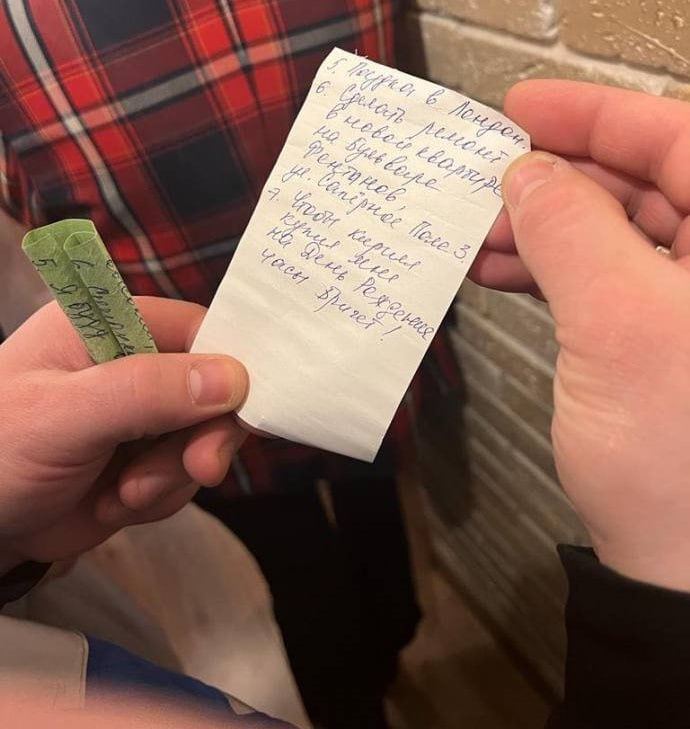 5. Поездка в Лондон.
6. Сделать ремонт
в новой квартире
на Бульваре
Фонтанов,
ул. Сапёрное Поле 3
7. Чтобы Кирилл
купил мне
на День Рождения
часы Бригет!
5. Я